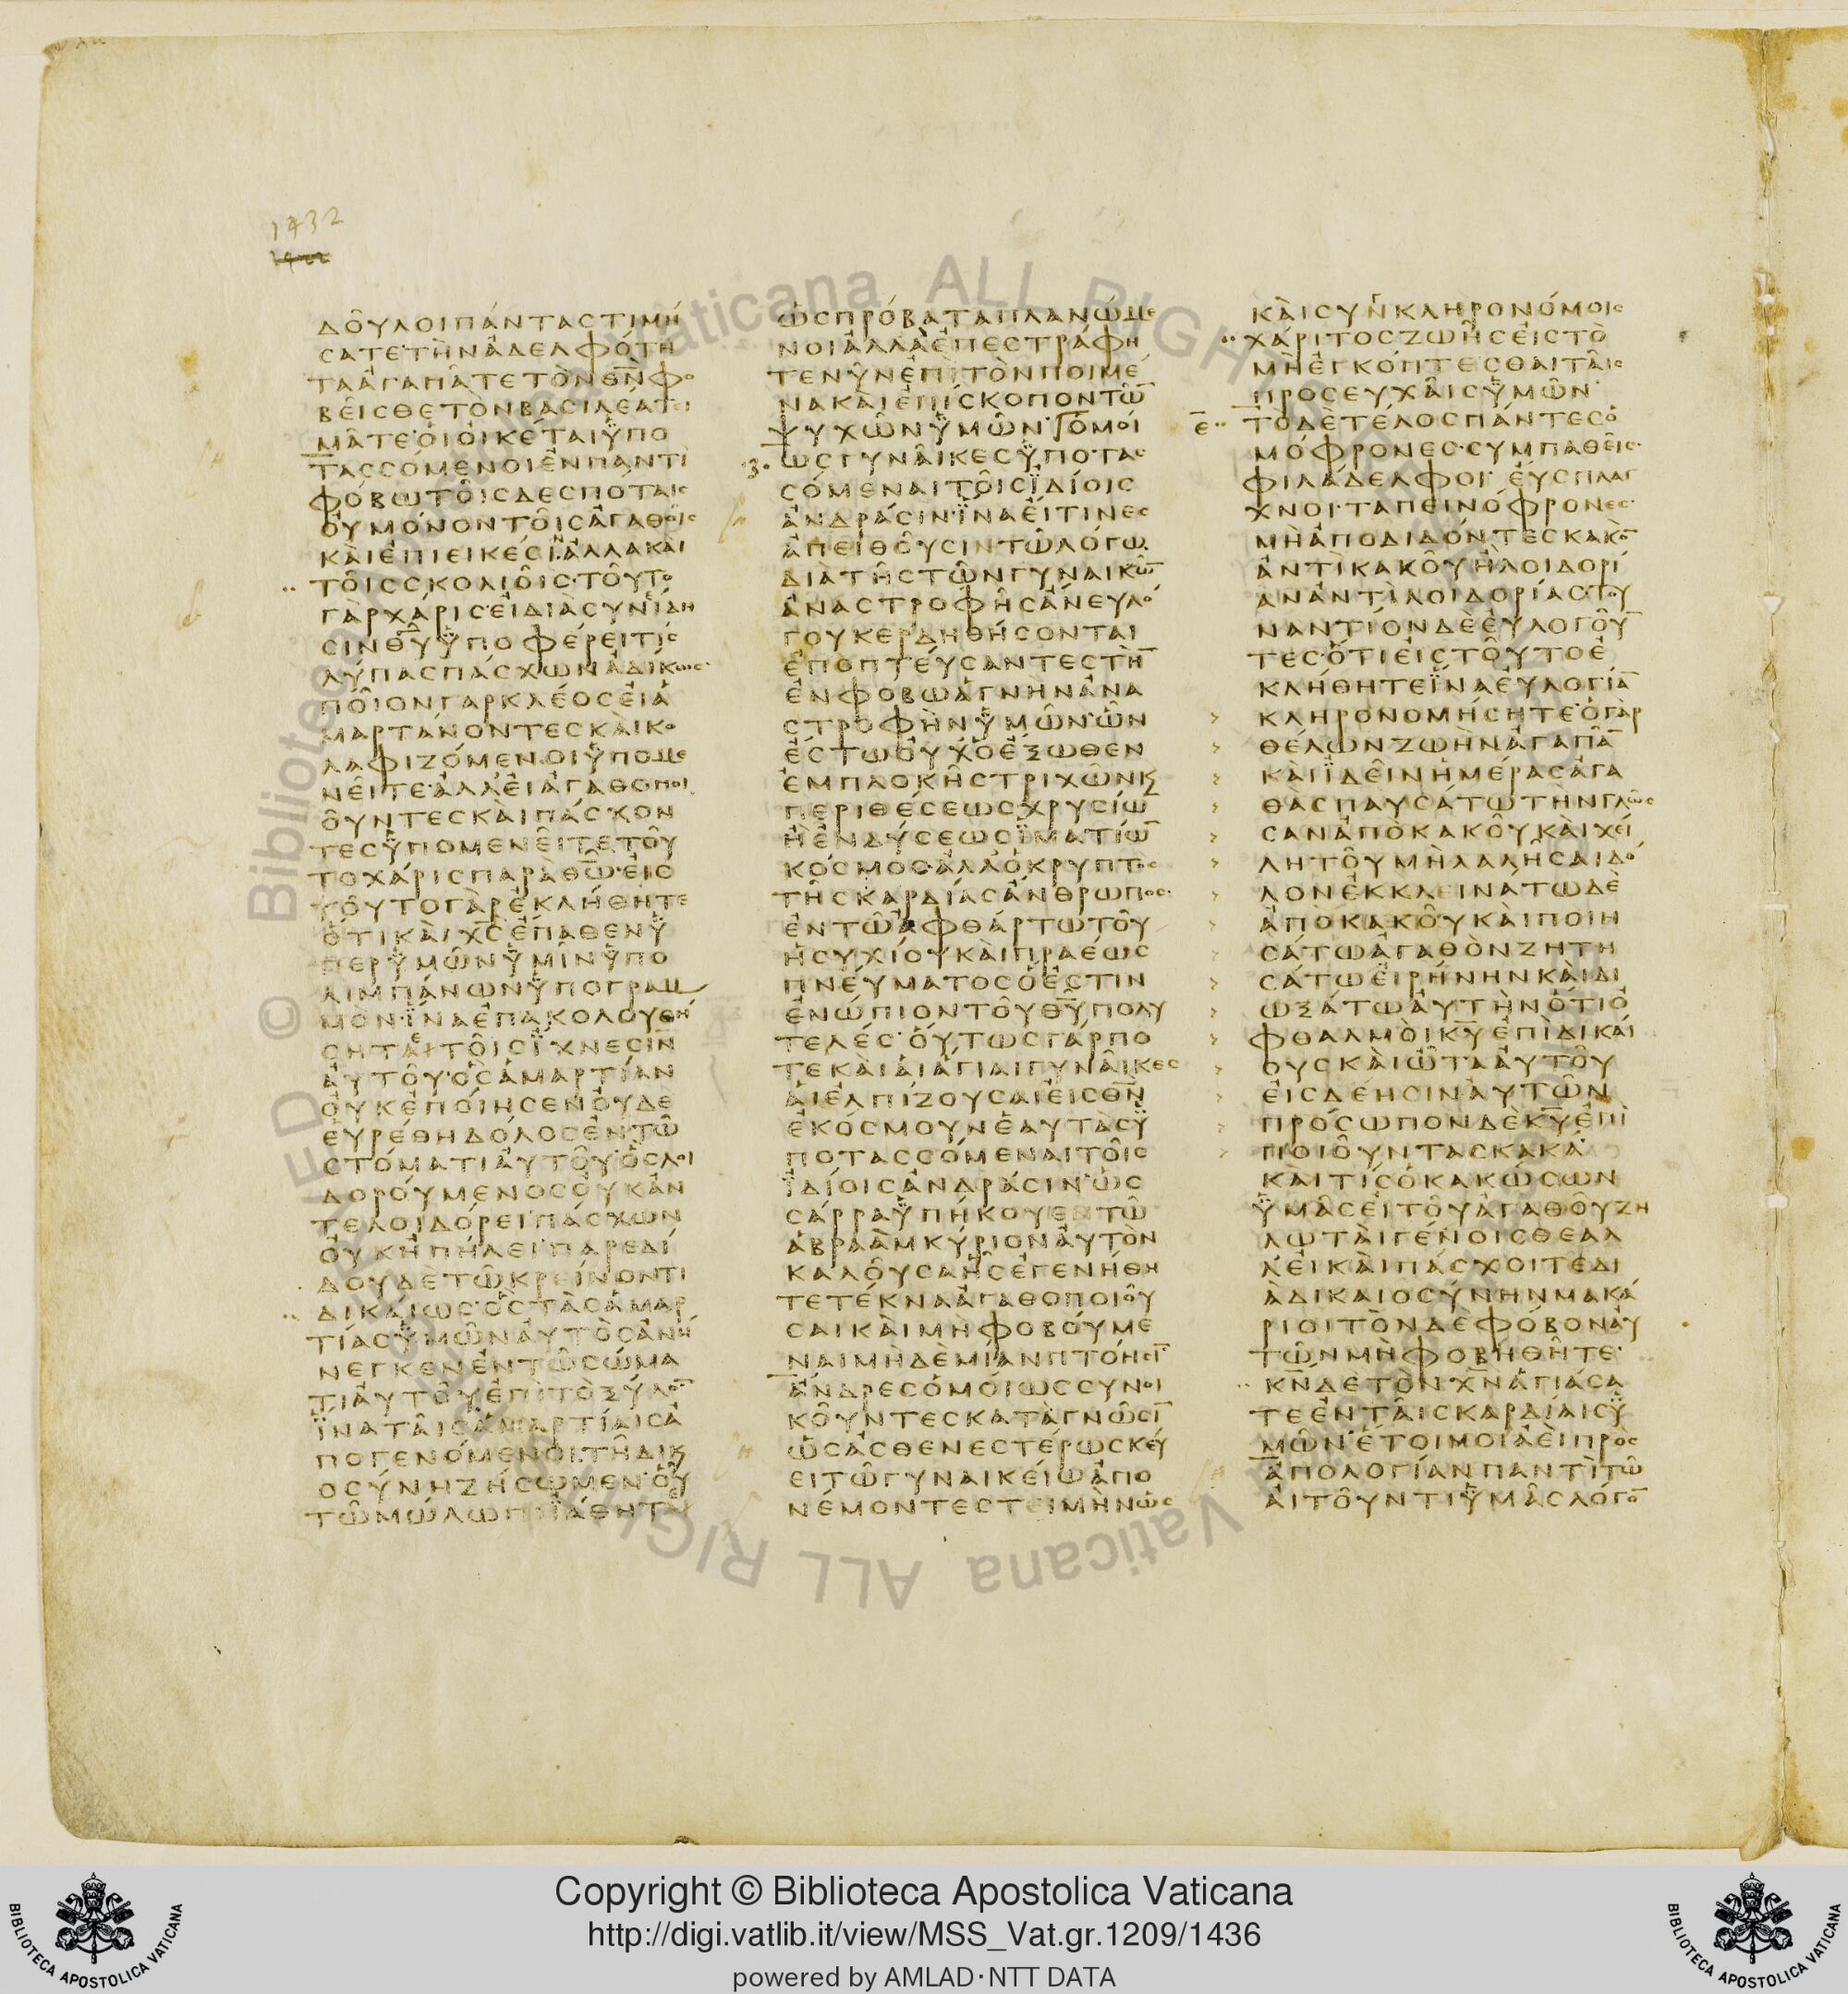 1432
1422
ΔΟΥΛΟΙΠΑΝΤΑΣΤΙΜΗ
ΣΑΤΕΤΗΝΑΔΕΛΦΟΤΗ
ΤΑΑΓΑΠΑΤΕΤΟΝΘΝΦΟ
ΒΕΙΣΘΕΤΟΝΒΑΣΙΛΕΑΤΕΙ
ΜΑΤΕΟΙΟΙΚΕΤΑΙΫΠΟ
ΤΑΣΣΟΜΕΝΟΙΕΝΠΑΝΤΙ
ΦΟΒΩΤΟΙΣΔΕΣΠΟΤΑΙΣ
ΟΥΜΟΝΟΝΤΟΙΣΑΓΑΘΟΙΣ
ΚΑΙΕΠΙΕΙΚΕΣΙΝΑΛΛΑΚΑΙ
ΤΟΙΣΣΚΟΛΙΟΙΣ·ΤΟΥΤΟ
ΓΑΡΧΑΡΙΣΕΙΔΙΑΣΥΝΕΙΔΗ
ΣΙΝΘΥΫΠΟΦΕΡΕΙΤΙΣ
ΛΥΠΑΣΠΑΣΧΩΝΑΔΙΚΩΣ·
ΠΟΙΟΝΓΑΡΚΛΕΟΣΕΙΑ
ΜΑΡΤΑΝΟΝΤΕΣΚΑΙΚΟ
ΛΑΦΙΖΟΜΕΝΟΙΫΠΟΜΕ
ΝΕΙΤΕ·ΑΛΛΕΙΑΓΑΘΟΠΟΙ
ΟΥΝΤΕΣΚΑΙΠΑΣΧΟΝ
ΤΕΣΫΠΟΜΕΝΕΙΤΕΤΟΥ
ΤΟΧΑΡΙΣΠΑΡΑΘΩ·ΕΙΣ
ΤΟΥΤΟΓΑΡΕΚΛΗΘΗΤΕ
ΟΤΙΚΑΙΧΣΕΠΑΘΕΝΫ
ΠΕΡΫΜΩΝΫΜΙΝΫΠΟ
ΛΙΜΠΑΝΩΝΫΠΟΓΡΑΜ
ΜΟΝ·ΪΝΑΕΠΑΚΟΛΟΥΘΗ
ΣΗΤΑΙΤΟΙΣΪΧΝΕΣΙΝ
ΑΥΤΟΥ·ΟΣΑΜΑΡΤΙΑΝ
ΟΥΚΕΠΟΙΗΣΕΝΟΥΔΕ
ΕΥΡΕΘΗΔΟΛΟΣΕΝΤΩ
ΣΤΟΜΑΤΙΑΥΤΟΥ·ΟΣΛΟΙ
ΔΟΡΟΥΜΕΝΟΣΟΥΚΑΝ
ΤΕΛΟΙΔΟΡΕΙ·ΠΑΣΧΩΝ
ΟΥΚΗΠΗΛΕΙ·ΠΑΡΕΔΙ
ΔΟΥΔΕΤΩΚΡΕΙΝΟΝΤΙ
ΔΙΚΑΙΩΣ·ΟΣΤΑΣΑΜΑΡ
ΤΙΑΣΫΜΩΝΑΥΤΟΣΑΝΗ
ΝΕΓΚΕΝΕΝΤΩΣΩΜΑ
ΤΙΑΥΤΟΥΕΠΙΤΟΞΥΛΟ
ΪΝΑΤΑΙΣΑΜΑΡΤΙΑΙΣΑ
ΠΟΓΕΝΟΜΕΝΟΙΤΗΔΙΚΑΙ
ΟΣΥΝΗΖΗΣΩΜΕΝ·ΟΥ
ΤΩΜΩΛΩΠΙΪΑΘΗΤΕ
ΩΣΠΡΟΒΑΤΑΠΛΑΝΩΜΕ
ΝΟΙΑΛΛΑΕΠΕΣΤΡΑΦΗ
ΤΕΝΥΝΕΠΙΤΟΝΠΟΙΜΕ
ΝΑΚΑΙΕΠΙΣΚΟΠΟΝΤΩ
ΨΥΧΩΝΫΜΩΝ·ΟΜΟΙ
ΩΣΓΥΝΑΙΚΕΣΫΠΟΤΑΣ
ΣΟΜΕΝΑΙΤΟΙΣΪΔΙΟΙΣ
ΑΝΔΡΑΣΙΝ·ΪΝΑΕΙΤΙΝΕΣ
ΑΠΕΙΘΟΥΣΙΝΤΩΛΟΓΩ
ΔΙΑΤΗΣΤΩΝΓΥΝΑΙΚΩ
ΑΝΑΣΤΡΟΦΗΣΑΝΕΥΛΟ
ΓΟΥΚΕΡΔΗΘΗΣΟΝΤΑΙ
ΕΠΟΠΤΕΥΣΑΝΤΕΣΤΗ
ΕΝΦΟΒΩΑΓΝΗΝΑΝΑ
ΣΤΡΟΦΗΝΫΜΩΝ·ΩΝ
ΕΣΤΩΟΥΧΟΕΞΩΘΕΝ
ΕΜΠΛΟΚΗΣΤΡΙΧΩΝΚ
ΠΕΡΙΘΕΣΕΩΣΧΡΥΣΙΩ
ΗΕΝΔΥΣΕΩΣΪΜΑΤΙΩ
ΚΟΣΜΟΣ·ΑΛΛΟΚΡΥΠΤΟΣ
ΤΗΣΚΑΡΔΙΑΣΑΝΘΡΩΠΟΣ·
ΕΝΤΩΑΦΘΑΡΤΩΤΟΥ
ΗΣΥΧΙΟΥΚΑΙΠΡΑΕΩΣ
ΠΝΕΥΜΑΤΟΣΟΕΣΤΙΝ
ΕΝΩΠΙΟΝΤΟΥΘΥΠΟΛΥ
ΤΕΛΕΣ·ΟΥΤΩΣΓΑΡΠΟ
ΤΕΚΑΙΑΙΑΓΙΑΙΓΥΝΑΙΚΕΣ
ΑΙΕΛΠΙΖΟΥΣΑΙΕΙΣΘΝ
ΕΚΟΣΜΟΥΝΕΑΥΤΑΣΫ
ΠΟΤΑΣΣΟΜΕΝΑΙΤΟΙΣ
ΪΔΙΟΙΣΑΝΔΡΑΣΙΝ·ΩΣ
ΣΑΡΡΑΫΠΗΚΟΥΕΝΤΩ
ΑΒΡΑΑΜΚΥΡΙΟΝΑΥΤΟΝ
ΚΑΛΟΥΣΑΗΣΕΓΕΝΗΘΗ
ΤΕΤΕΚΝΑΑΓΑΘΟΠΟΙΟΥ
ΣΑΙΚΑΙΜΗΦΟΒΟΥΜΕ
ΝΑΙΜΗΔΕΜΙΑΝΠΤΟΗΣΙ
ΑΝΔΡΕΣΟΜΟΙΩΣΣΥΝΟΙ
ΚΟΥΝΤΕΣΚΑΤΑΓΝΩΣΙ
ΩΣΑΣΘΕΝΕΣΤΕΡΩΣΚΕΥ
ΕΙΤΩΓΥΝΑΙΚΕΙΩΑΠΟ
ΝΕΜΟΝΤΕΣΤΕΙΜΗΝΩΣ
ΚΑΙΣΥΝΚΛΗΡΟΝΟΜΟΙΣ
ΧΑΡΙΤΟΣΖΩΗΣΕΙΣΤΟ
ΜΗΕΓΚΟΠΤΕΣΘΑΙΤΑΙΣ
ΠΡΟΣΕΥΧΑΙΣΫΜΩΝ·
Ε ΤΟΔΕΤΕΛΟΣΠΑΝΤΕΣΟ
ΜΟΦΡΟΝΕΣ·ΣΥΜΠΑΘΕΙΣ·
ΦΙΛΑΔΕΛΦΟΙ·ΕΥΣΠΛΑΓ
ΧΝΟΙ·ΤΑΠΕΙΝΟΦΡΟΝΕΣ·
ΜΗΑΠΟΔΙΔΟΝΤΕΣΚΑΚΟ
ΑΝΤΙΚΑΚΟΥΗΛΟΙΔΟΡΙ
ΑΝΑΝΤΙΛΟΙΔΟΡΙΑΣ·ΤΟΥ
ΝΑΝΤΙΟΝΔΕΕΥΛΟΓΟΥ
ΤΕΣ·ΟΤΙΕΙΣΤΟΥΤΟΕ
ΚΛΗΘΗΤΕΪΝΑΕΥΛΟΓΙΑ
ΚΛΗΡΟΝΟΜΗΣΗΤΕ·ΟΓΑΡ
ΘΕΛΩΝΖΩΗΝΑΓΑΠΑ
ΚΑΙΪΔΕΙΝΗΜΕΡΑΣΑΓΑ
ΘΑΣΠΑΥΣΑΤΩΤΗΝΓΛΩΣ
ΣΑΝΑΠΟΚΑΚΟΥΚΑΙΧΕΙ
ΛΗΤΟΥΜΗΛΑΛΗΣΑΙΔΟ
ΛΟΝΕΚΚΛΕΙΝΑΤΩΔΕ
ΑΠΟΚΑΚΟΥΚΑΙΠΟΙΗ
ΣΑΤΩΑΓΑΘΟΝΖΗΤΗ
ΣΑΤΩΕΙΡΗΝΗΝΚΑΙΔΙ
ΩΞΑΤΩΑΥΤΗΝΟΤΙΟ
ΦΘΑΛΜΟΙΚΥΕΠΙΔΙΚΑΙ
ΟΥΣΚΑΙΩΤΑΑΥΤΟΥ
ΕΙΣΔΕΗΣΙΝΑΥΤΩΝ
ΠΡΟΣΩΠΟΝΔΕΚΥΕΠΙ
ΠΟΙΟΥΝΤΑΣΚΑΚΑ·
ΚΑΙΤΙΣΟΚΑΚΩΣΩΝ
ΫΜΑΣΕΙΤΟΥΑΓΑΘΟΥΖΗ
ΛΩΤΑΙΓΕΝΟΙΣΘΕΑΛ
ΛΕΙΚΑΙΠΑΣΧΟΙΤΕΔΙ
ΑΔΙΚΑΙΟΣΥΝΗΝΜΑΚΑ
ΡΙΟΙΤΟΝΔΕΦΟΒΟΝΑΥ
ΤΩΝΜΗΦΟΒΗΘΗΤΕ·
ΚΝΔΕΤΟΝΧΝΑΓΙΑΣΑ
ΤΕΕΝΤΑΙΣΚΑΡΔΙΑΙΣΫ
ΜΩΝ·ΕΤΟΙΜΟΙΑΕΙΠΡΟΣ
ΑΠΟΛΟΓΙΑΝΠΑΝΤΙΤΩ
ΑΙΤΟΥΝΤΙΫΜΑΣΛΟΓΟ
© Biblioteca Apostolica Vaticana ALL RIGHTS RESERVED
Copyright © Biblioteca Apostolica Vaticana
http://digi.vatlib.it/view/MSS_Vat.gr.1209/1436
powered by AMLAD·NTT DATA
BIBLIOTECA APOSTOLICA VATICANA
BIBLIOTECA APOSTOLICA VATICANA